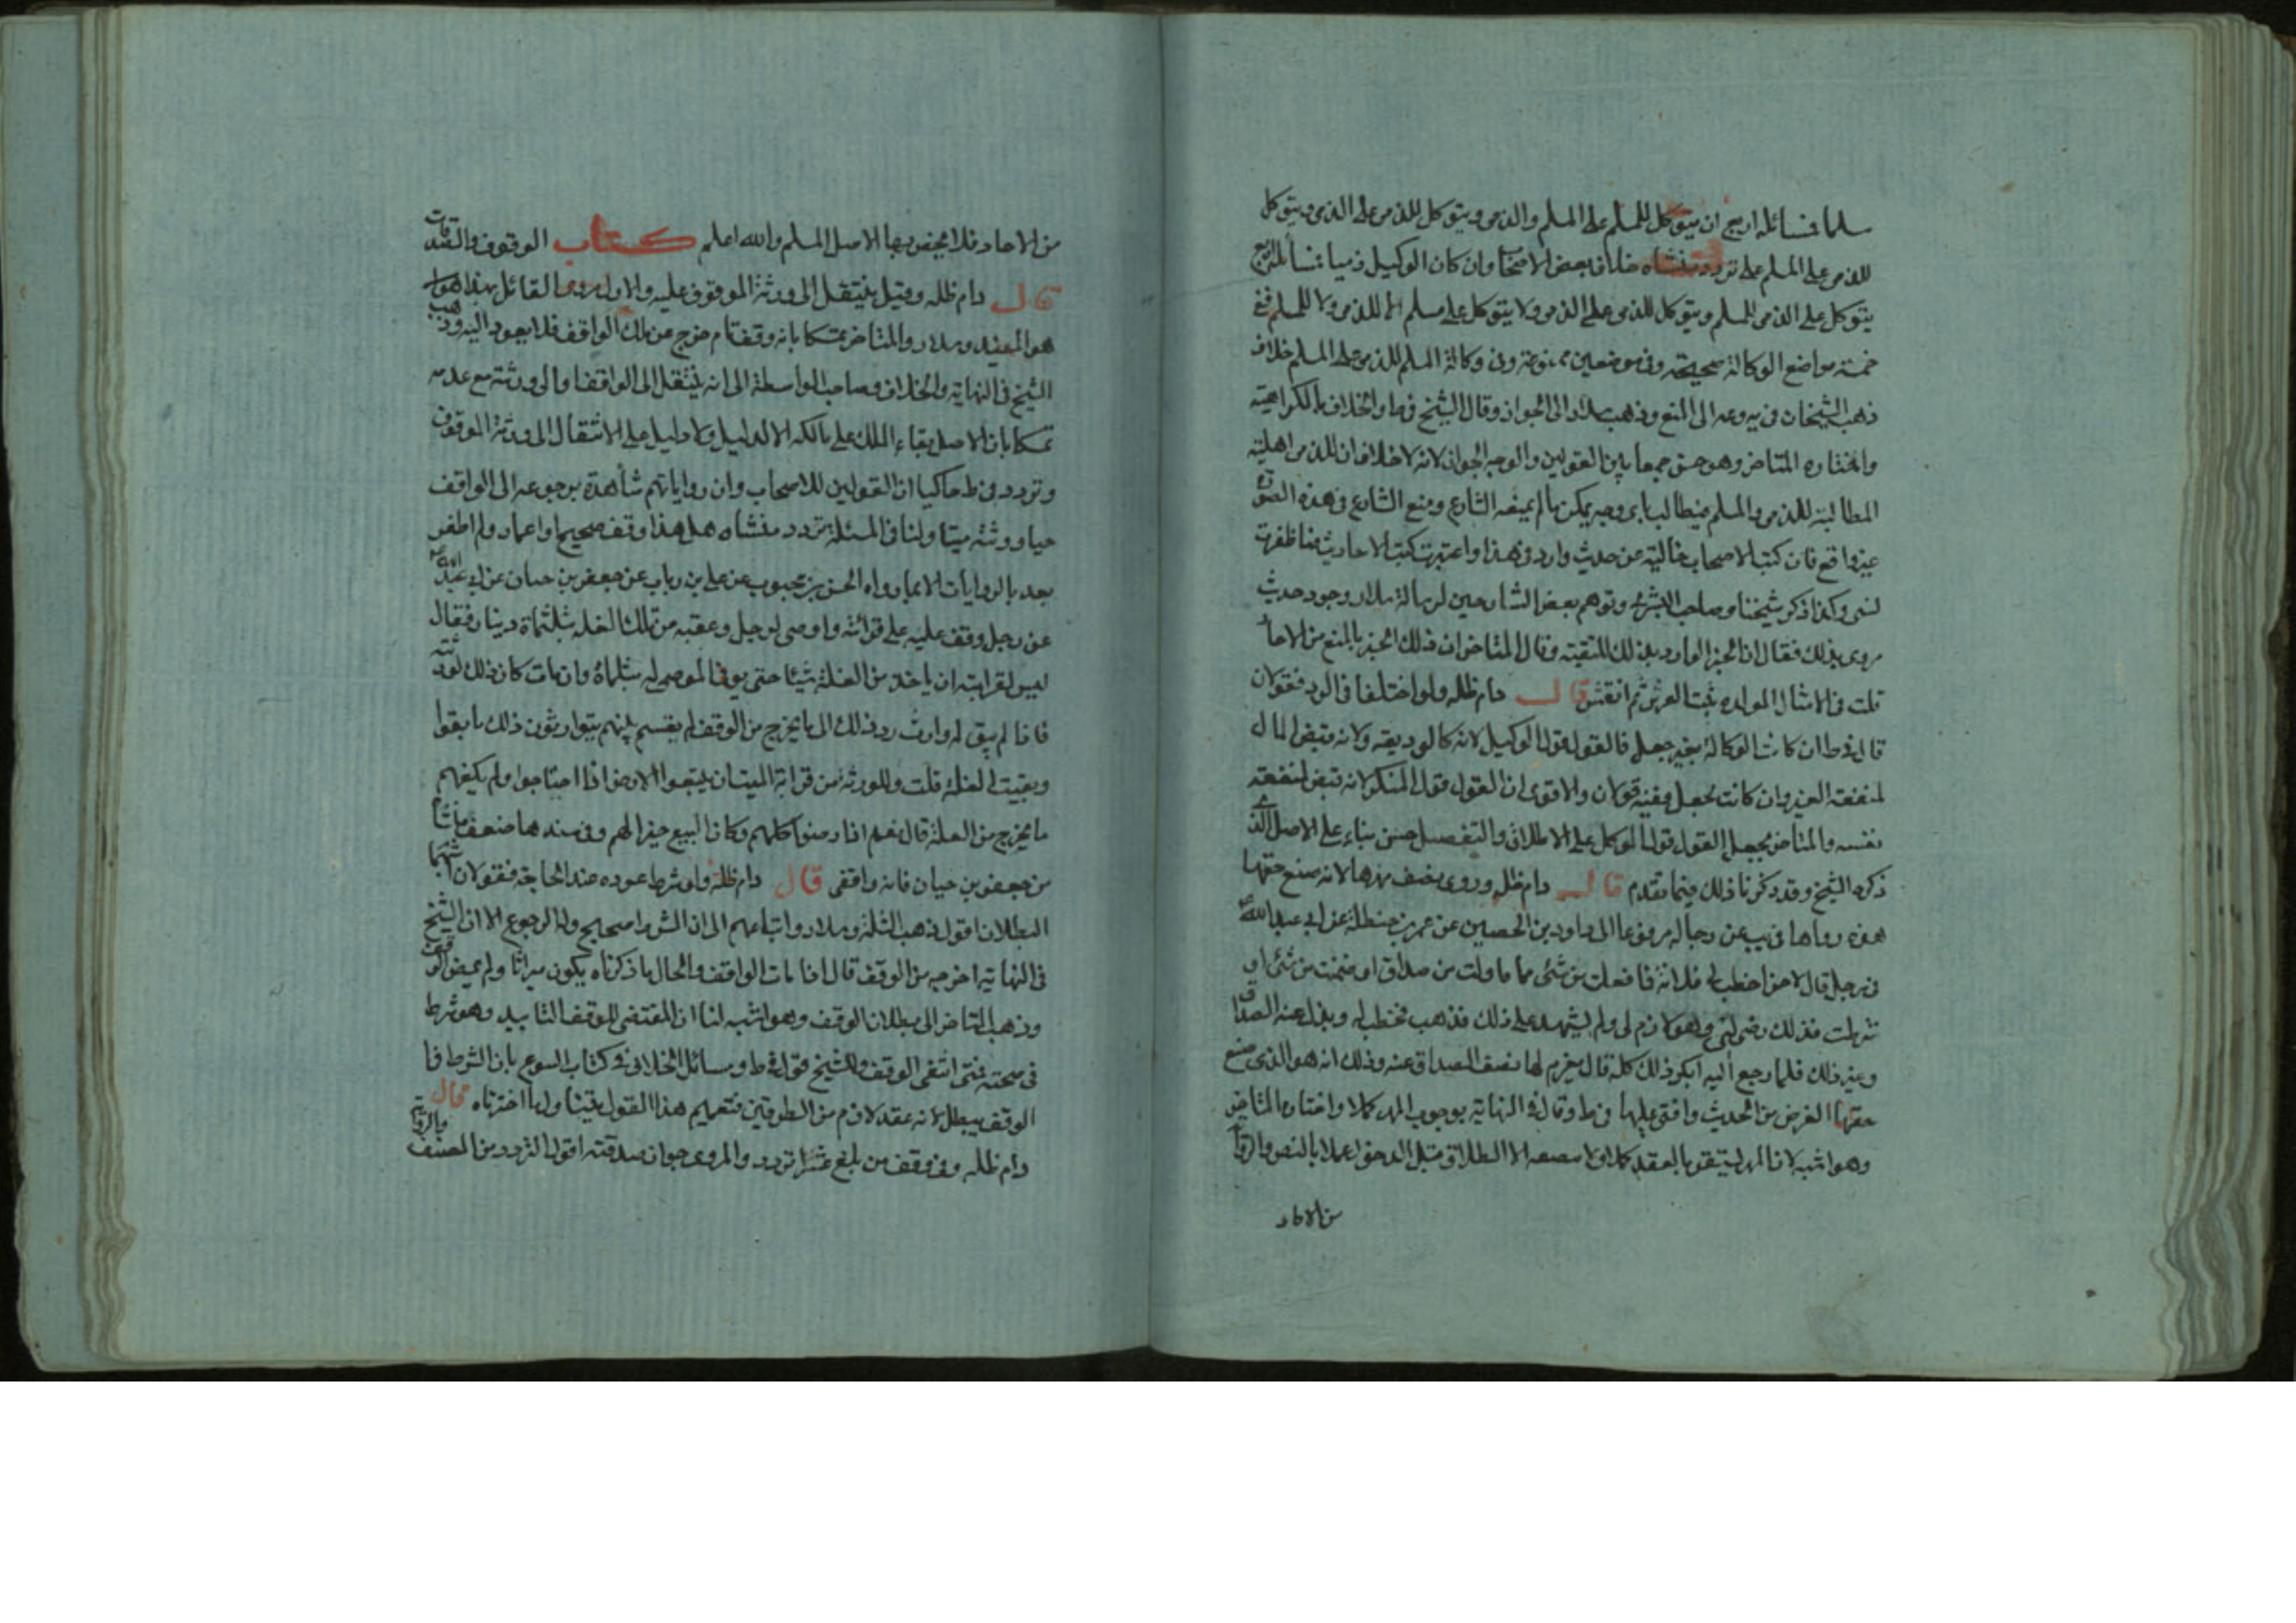 سلما فمسائله اربع ان يتوكل للمسلم على المسلم والذمي ويتوكل للذمي على الذمي ويتوكل
للذمي على المسلم على تردد منشاه خلاف بعض الاصحاب وان كان الوكيل ذميا فمسائله اربع
يتوكل على الذمي للمسلم ويتوكل للذمي على الذمي ولا يتوكل على مسلم لا للذمي ولا للمسلم ففي
خمسة مواضع الوكالة صحيحة وفي موضعين ممنوعة وفي وكالة المسلم للذمي على المسلم خلاف
ذهب الشيخان في يه وعه الى المنع وذهب سلار الى الجواز وقال الشيخ في ط والخلاف بالكراهية
واختاره المتاخر وهو حسن جمعا بين القولين والوجه الجواز لانه لا خلاف ان للذمي اهلية
المطالبة للذمي والمسلم فيطالب باى وجه يمكن ما لم يمنعه الشارع ومنع الشارع في هذه الصورة
غير واقع فان كتب الاصحاب خالية من حديث وارد في هذا واعتبرت كتب الاحاديث فما ظفرت
لشي وكذا ذكر شيخنا وصاحب البشرى وتوهم بعض الشارحين لرسالة سلار وجود حديث
مروى بذلك فقال ان الخبر الوارد بذلك للتقية وقال المتاخر ان ذلك الخبر بالمنع من الاحاد
قلت في الامثال المولده ثبت العرش ثم انقش قال دام ظله ولو اختلفا في الرد فقولان
قال في ط ان كانت الوكالة بغير جعل فالقول قول الوكيل لانه كالوديعة ولانه قبض المال
لمنفعة الغير وان كانت بجعل ففيه قولان والاقوى ان القول قول المنكر لانه قبض لمنفعة
نفسه والمتاخر يجعل القول قول الموكل على الاطلاق والتفصيل حسن بناء على الاصل الذى
ذكره الشيخ وقد ذكرنا ذلك فيما تقدم قال دام ظله وروى نصف مهرها لانه ضيع حقها
هذه رواها في يب عن رجاله مرفوعا الى داود بن الحصين عن عمر بن حنظلة عن ابي عبد الله
في رجل قال لاخر اخطب لي فلانة فما فعلت من شئ مما قاولت من صداق او ضمنت من شئ او
شرطت فذلك رضى لي وهو لازم لي ولم يشهد على ذلك فذهب فخطب له وبذل عنه الصداق
وغير ذلك فلما رجع اليه انكر ذلك كله قال يغرم لها نصف الصداق عنه وذلك انه هو الذى ضيع
حقها الغرض من الحديث وافتى عليها في ط وقال في النهاية بوجوب المهر كملا واختاره المتاخر
وهو اشبه لان المهر يستقر بالعقد كملا ولا ينصفه الا الطلاق قبل الدخول عملا بالنص والرواية
من الاحاد
من الاحاد فلا يخص بها الاصل المسلم والله اعلم كتاب الوقوف والصدقات
قال دام ظله وقيل ينتقل الى ورثة الموقوف عليه والاول مروى القائل بهذا
هو المفيد وسلار والمتاخر تمسكا بانه وقف تام خرج عن ملك الواقف فلا يعود اليه وذهب
الشيخ في النهاية والخلاف وصاحب الواسطة الى انه ينتقل الى الواقف او الى ورثته مع عدمه
تمسكا بان الاصل بقاء الملك على مالكه الا لدليل ولا دليل على الانتقال الى ورثة الموقوف
وتردد في ط حاكيا ان القولين للاصحاب وان رواياتهم شاهدة برجوعه الى الواقف
حيا وورثته ميتا ولنا في المسئلة تردد منشاه هل هذا وقف صحيح او اعمار ولم اظفر
بعد بالروايات الا بما رواه الحسن بن محبوب عن علي بن رياب عن جعفر بن حيان عن ابي عبد الله
عن رجل وقف غلة على قرابته واوصى لرجل وعقبه من تلك الغلة بثلثماة دينار فقال
ليس لقرابته ان ياخذ من الغلة شيئا حتى يوفى الموصى له بثلماة وان مات كان ذلك لورثته
فاذا لم يبق له وارث رد ذلك الى ما يخرج من الوقف ثم يقسم بينهم يتوارثون ذلك ما بقوا
وبقيت الغلة قلت وللورثة من قرابة الميت ان يبيعوا الارض اذا احتاجوا ولم يكفهم
ما يخرج من الغلة قال نعم اذا رضوا كلهم وكان البيع خيرا لهم وفي سندها ضعف ناشئا
من جعفر بن حيان فانه واقفى قال دام ظله ولو شرط عوده عند الحاجة فقولان اشبههما
البطلان اقول ذهب الثلثة وسلار واتباعهم الى ان الشرط صحيح وله الرجوع الا ان الشيخ
في النهاية اخرجه من الوقف قال اذا مات الواقف والحال ما ذكرناه يكون ميراثا ولم يمض الوقف
وذهب المتاخر الى بطلان الوقف وهو اشبه لنا ان المقتضى للوقف التابيد وهو شرط
في صحته فمتى انتفى انتفى الوقف وللشيخ قول في ط ومسائل الخلاف في كتاب البيوع بان الشرط في
الوقف يبطل لانه عقد لازم من الطرفين فتعميم هذا القول يتناول ما اخترناه قال
دام ظله وفي وقف من بلغ عشرا تردد والمروى جواز صدقته اقول التردد من المصنف